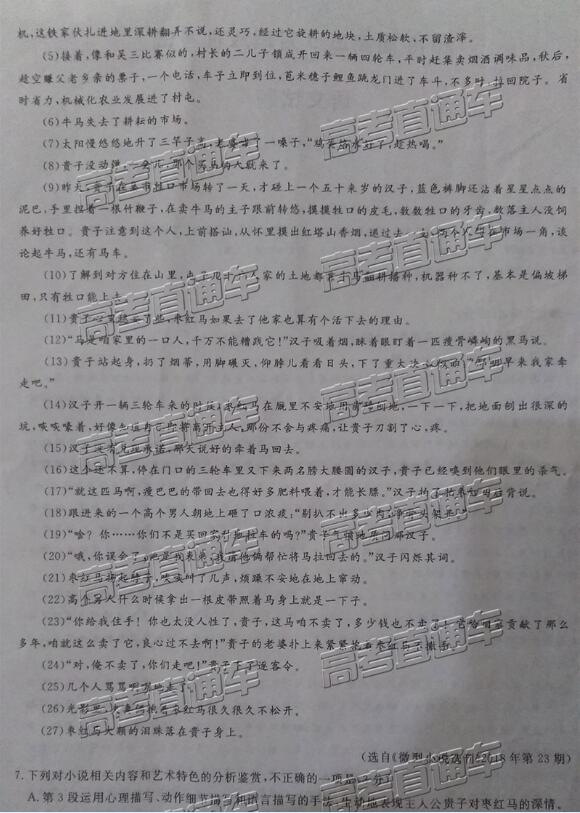 机,这铁家伙扎进地里深耕翻弄不说,还灵巧,经过它旋耕的地块,土质松软、不留渣滓。
(5)接着,像和吴三比赛似的,村长的二儿子领成开回来一辆四轮车,平时赶集卖烟酒调味品,秋后,
趁空赚父老乡亲的票子,一个电话,车子立即到位,苞米穗子鲤鱼跳龙门进了车斗,不多时,拉回院子。省
时省力,机械化农业发展进了村屯。
(6)牛马失去了耕耘的市场。
(7)太阳慢悠悠地升了三竿子高,老婆喊了一嗓子,“鸡 红了,趁热喝。”
(8)贵子没动弹,一会儿,那个买马的人就来了。
(9)昨天,贵子在 牲口市场转了一天,才碰上一个五十来岁的汉子,蓝色裤脚还沾着星星点点的
泥巴,手里捏着一根竹鞭子,在卖牛马的主子跟前转悠,摸摸牲口的皮毛,数数牲口的牙齿,数落主人没饲
养好牲口。贵子注意到这个人,上前搭讪,从怀里摸出红塔山香烟,递过去 两个人 市场一角,谈
论起牛马,还有马车。
(10)了解到对方住在山里, 人家的土地都 牛马翻耕播种,机器种不了,基本是偏坡梯
田,只有牲口能上去。
(11)贵子心里 些,枣红马如果去了他家也算有个活下去的理由。
(12)“马是咱家里的一口人,千万不能糟践它!”汉子吸着烟,眯着眼盯着一匹瘦骨嶙峋的黑马说。
(13)贵子站起身,扔了烟蒂,用脚碾灭,仰脖儿看看日头,下了重大决 “那明早来我家牵
走吧。”
(14)汉子开一辆三轮车来的时候,枣红马在厩里不安地用前蹄刨地,一下一下,把地面刨出很深的
坑,咴咴嚎着,好像 将离开主人,那份不舍与疼痛,让贵子刀割了心,疼。
(15)汉子没有兑现承诺,那天说好的牵着马回去。
(16)这个还不算,停在门口的三轮车里又下来两名膀大腰圆的汉子,贵子已经嗅到他们眼里的杀气。
(17)“就这匹马啊,瘦巴巴的带回去也得好多肥料喂着,才能长膘。”汉子拍了 枣红马后背说。
(18)跟进来的一个高个男人朝地上砸了口浓痰:“剔扒不出多少肉,净骨头架子!”
(19)“啥?你……你们不是买回家种地拉车的吗?”贵子气愤地质问那汉子。
(20)“哦,你误会了,他是我表弟,我请他俩帮忙将马拉回去的。”汉子闪烁其词。
(21)枣红马扬起脖子,咴咴叫了几声,烦躁不安地在地上窜动。
(22)高个男人什么时候拿出一根皮带照着马身上就是一下子。
(23)“你给我住手!你也太没人性了,贵子,这马咱不卖了,多少钱也不卖了!它给咱家贡献了那么
多年,咱就这么卖了它,良心过不去啊!”贵子的老婆扑上来紧紧 着枣红马不撒手。
(24)“对,俺不卖了,你们走吧!”贵子下了逐客令。
(25)几个人骂骂咧咧地走了。
(26)光影里, 枣红马很久很久不松开。
(27)枣红马大颗的泪珠落在贵子身上。
(选自《微型小说选刊》2018年第23期)
7. 下列对小说相关内容和艺术特色的分析鉴赏,不正确的一项是(3分)
A. 第3段运用心理描写、动作细节描写和语言描写的手法,生动地表现主人公贵子对枣红马的深情。
高考直通车
高考直通车
高考直通车
高考直通车
高考直通车
高考直通车
高考直通车
高考直通车